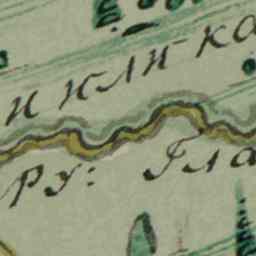 и клика
ру: Гла